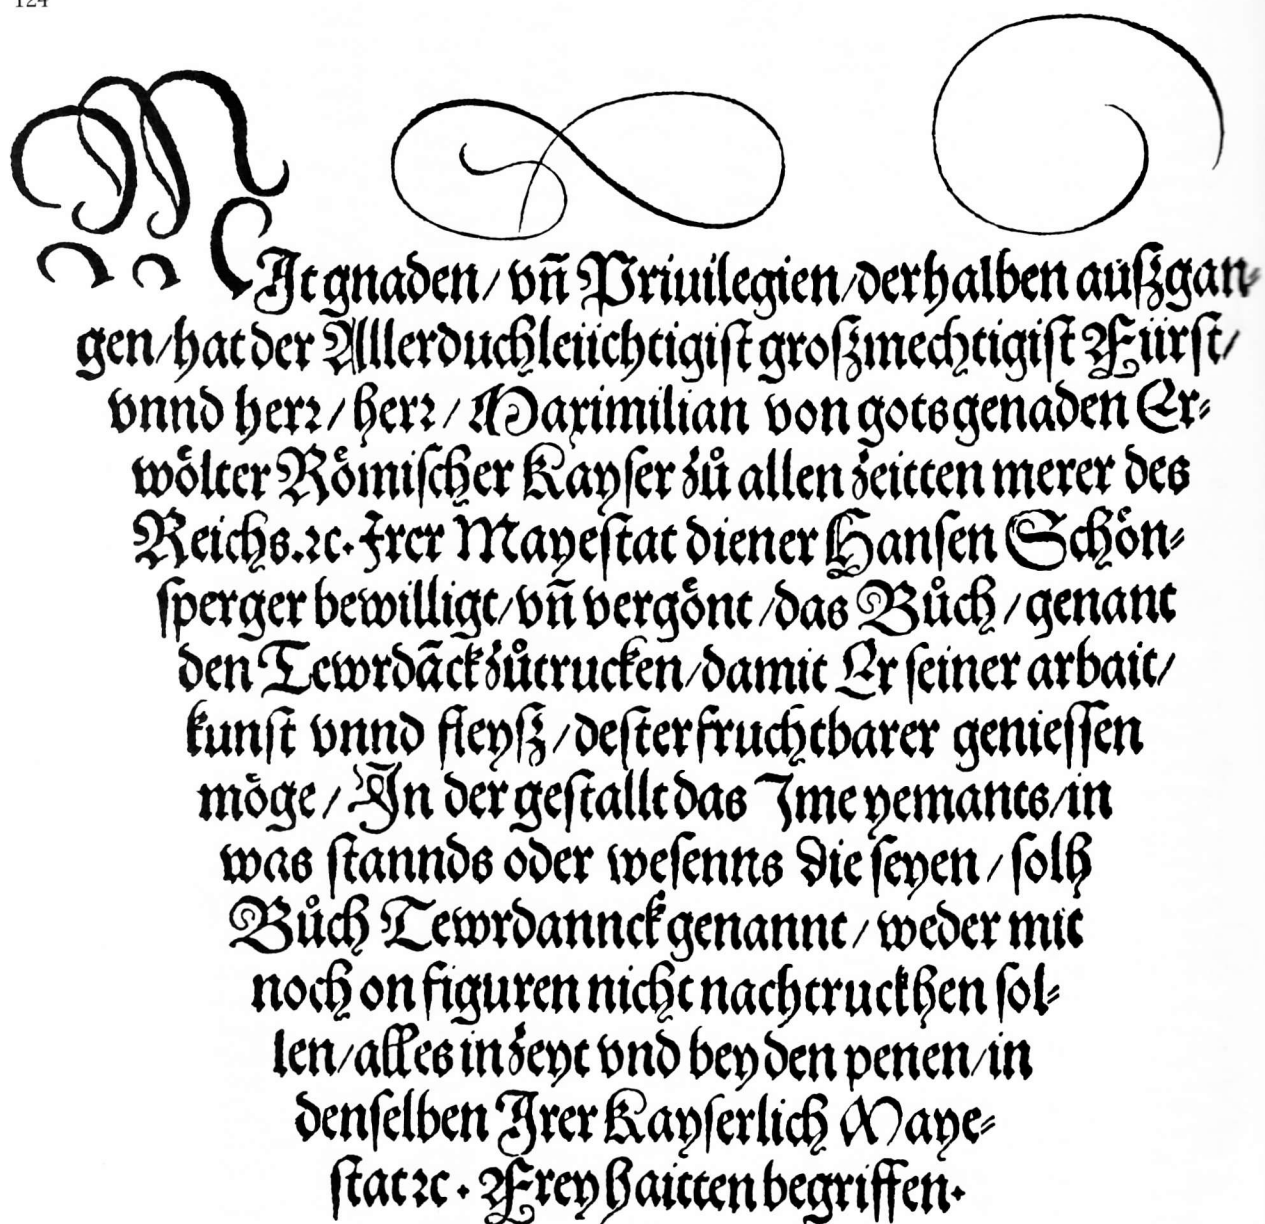 124
MIt gnaden/ vñ Priuilegien/derhalben außgan⸗
gen/hat der Allerduchleiichtigist großmechtigist Fürst/
vnnd herꝛ/ herꝛ/ Maximilian von gots genaden Er⸗
wölter Römischer Kayser zů allen zeitten merer des
Reichs.ꝛc. Irer Mayestat diener Hansen Schön⸗
sperger bewilligt/vñ vergönt/das Bůch/genant
den Tewrdãck zůtrucken/damit Er seiner arbait/
kunst vnnd fleyß/dester fruchtbarer geniessen
möge/ In der gestallt das Ime yemants/in
was stannds oder wesenns Die seyen/ solh
Bůch Tewrdannck genannt/ weder mit
noch on figuren nicht nachtruckhen sol⸗
len/alles in zeyt vnd bey den penen/in
denselben Irer Kayserlich Maye⸗
stat ꝛc. Freyhaitten begriffen.